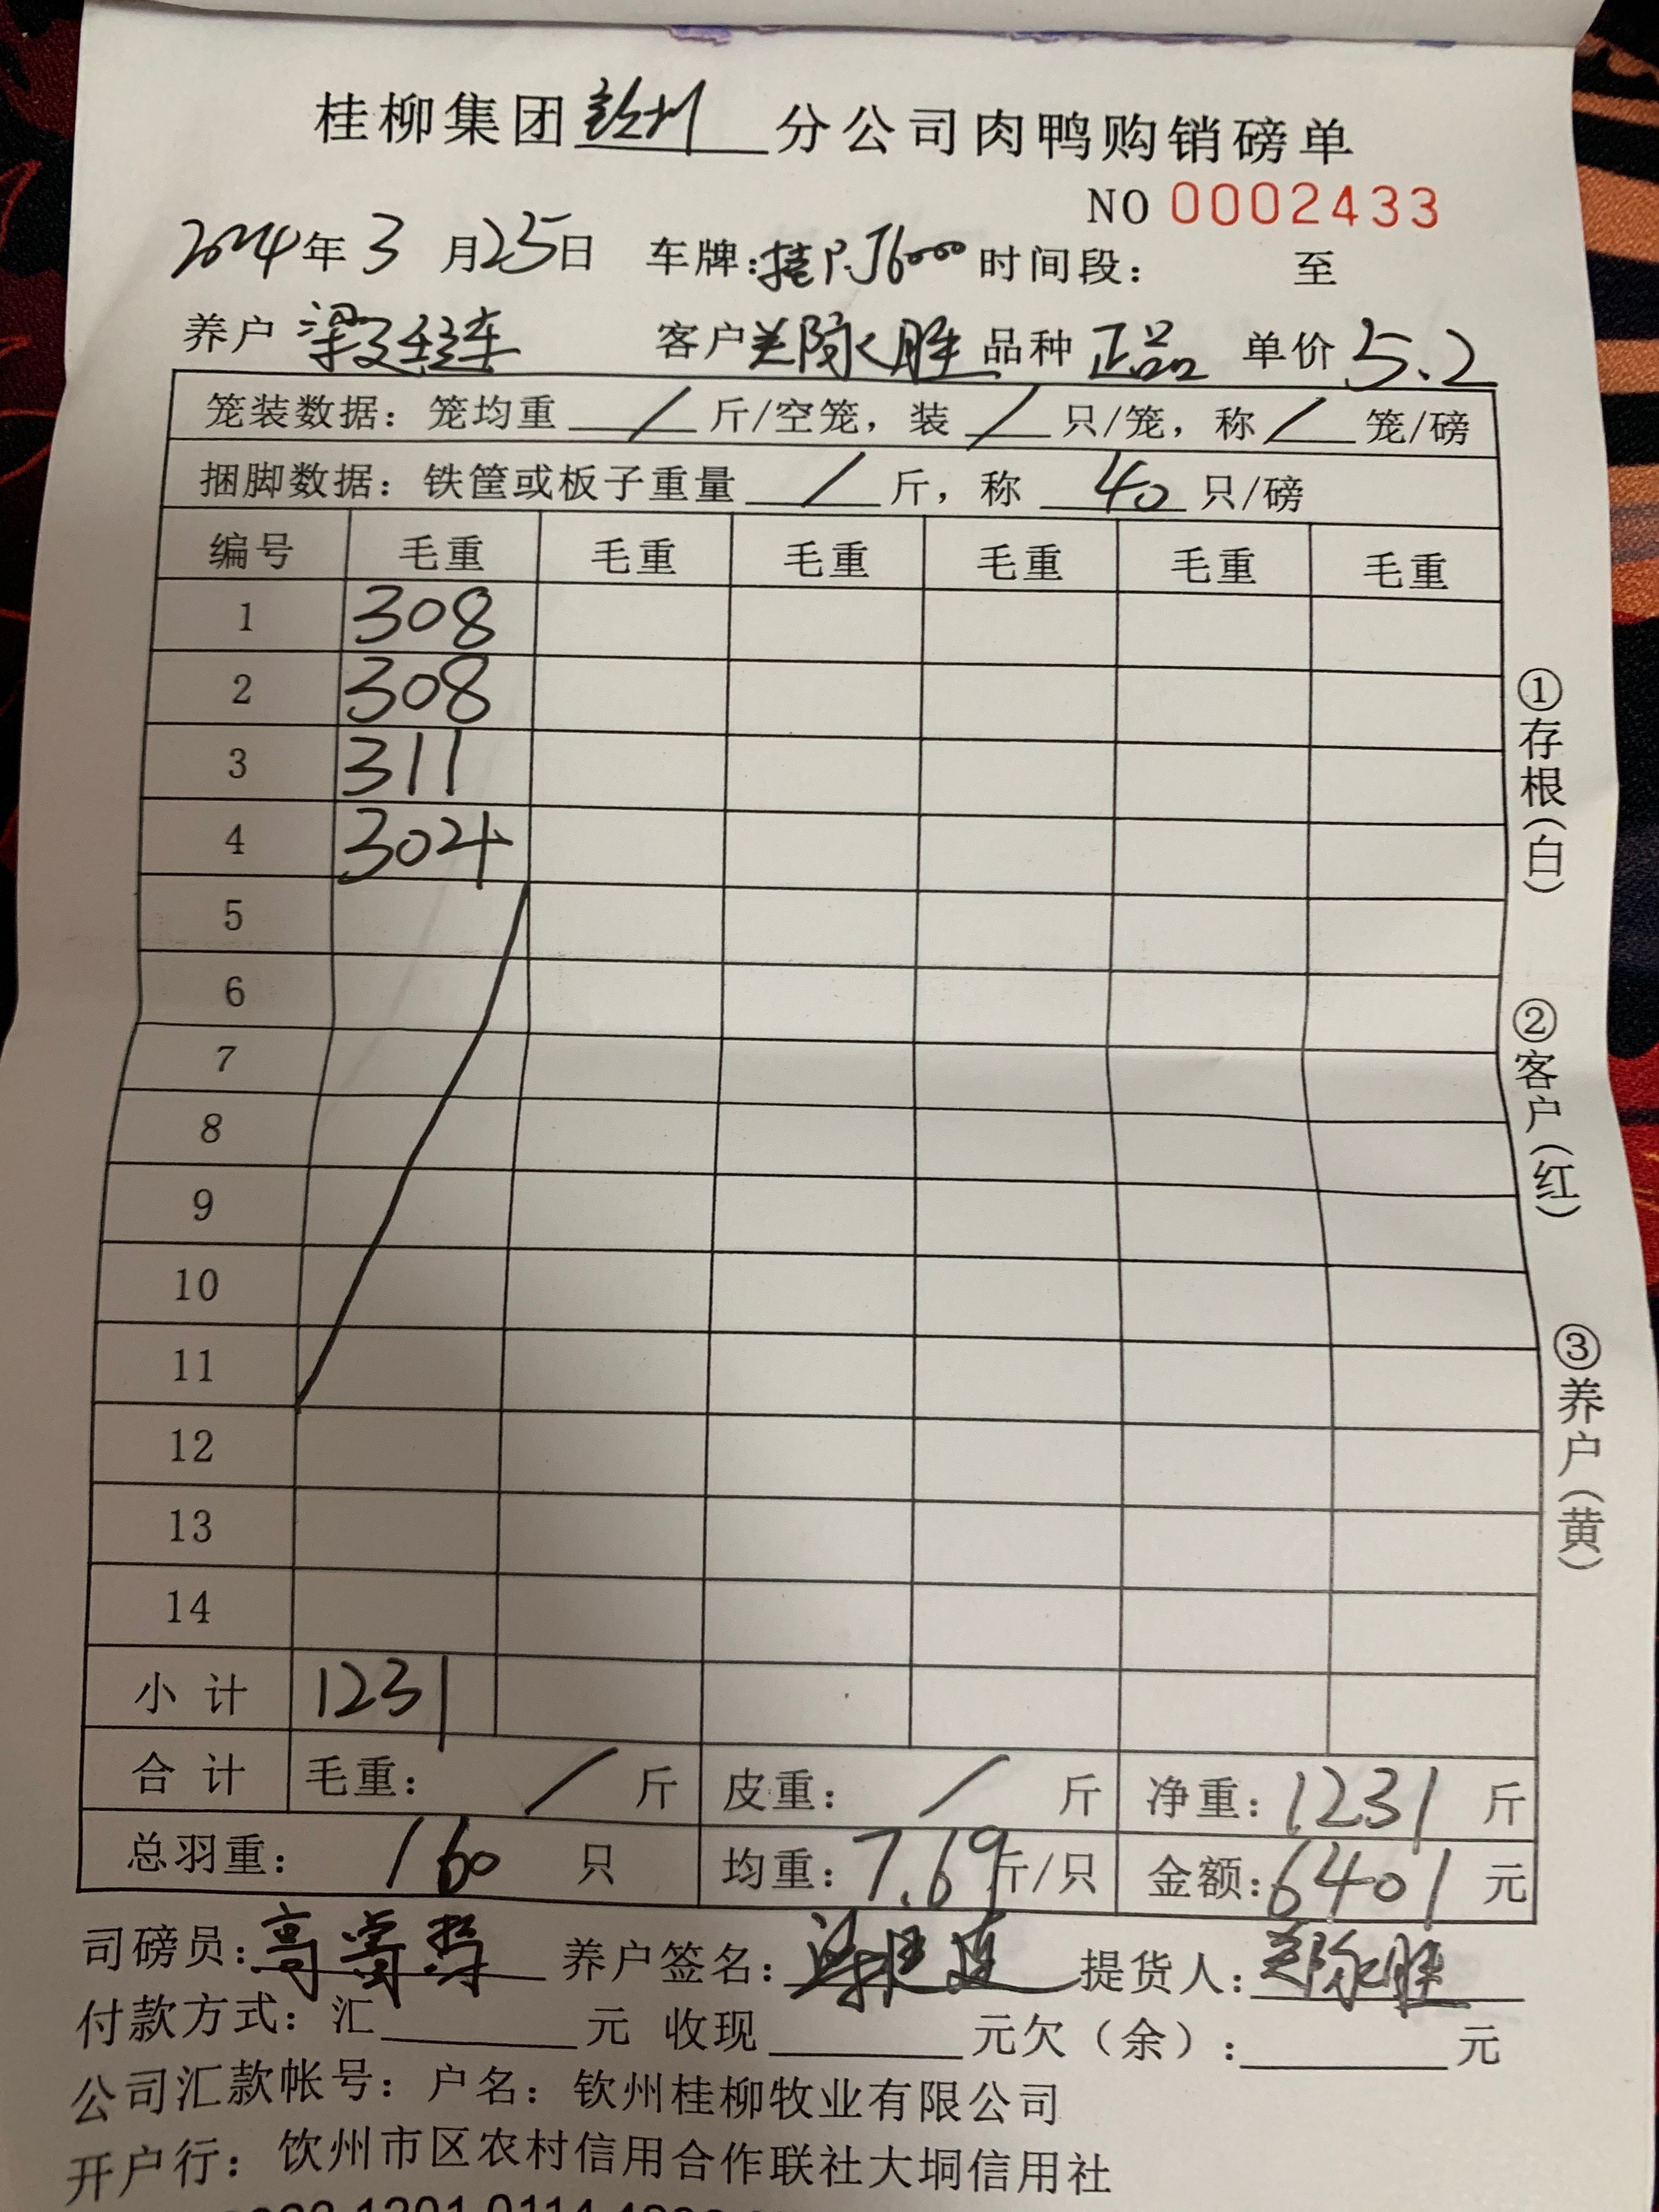 桂柳集团钦州分公司肉鸭购销磅单
NO 0002433
2024年3月25日 车牌:桂P.J6000 时间段: 至
养户 梁廷连 客户 关际永胜 品种 正品 单价 5.2
笼装数据：笼均重 / 斤/空笼，装 / 只/笼，称 / 笼/磅
捆脚数据：铁筐或板子重量 / 斤，称 40 只/磅
编号 毛重 毛重 毛重 毛重 毛重 毛重
1 308
2 308
3 311
4 304
5
6
7
8
9
10
11
12
13
14
小计 1231
合计 毛重： / 斤 皮重： / 斤 净重：1231 斤
总羽重： 160 只 均重：7.69斤/只 金额：6401 元
司磅员：高 养户签名：梁廷连 提货人：
付款方式：汇 元 收现 元欠（余）： 元
公司汇款帐号：户名：钦州桂柳牧业有限公司
开户行：饮州市区农村信用合作联社大垌信用社
①存根(白)
②客户(红)
③养户(黄)